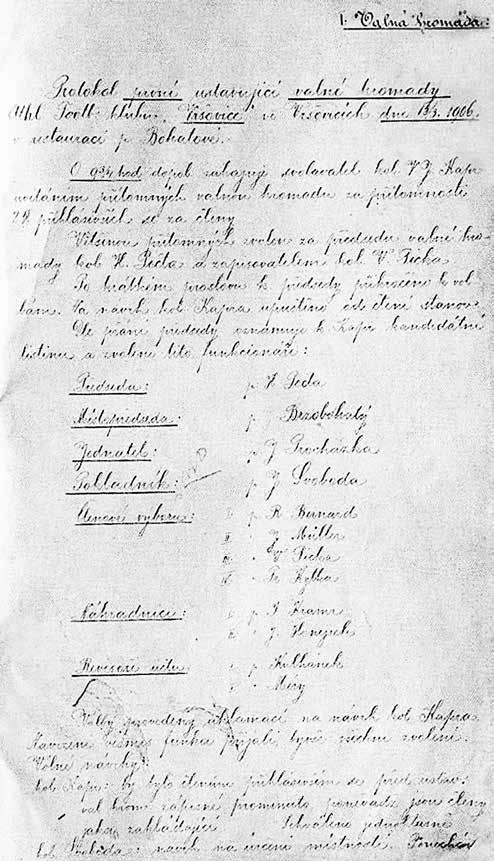 I. Valná hromada:
Protokol první ustavující valné hromady
Athl. Footb. klubu „Vršovice“ ve Vršovicích dne 13/3. 1906.
v restauraci p. Bohatové.
O 9 3/4 hod dopol. zahajuje svolavatel kol. V. J. Kapr
uvítáním přítomných valnou hromadu za přítomnosti
přihlásivších se za členy
Většinou přítomných zvolen za předsedu valné hro-
mady kol. a zapisovatelem kol. V. Picka
Po krátkém proslovu k předsedy přikročeno k vol-
bám. Na návrh kol. Kapra upuštěno od čtení stanov.
Dle přání předsedy oznamuje k. Kapr kandidátní
listinu a zvoleni tito funkcionáři:
Předseda: p.
Místopředseda: p. Drzobohatý
Jednatel: p. J. Procházka
Pokladník: p. J. Svoboda
Členové výboru: I. p. R. Bernard
II. " J. Müller
III. " Picka
IV. " Fr. Hybka
Náhradníci: I. p. Kramr
II. " J.
Revisoři účtů: I. p. Kulhánek
" Méry
Volby provedeny aklamací na návrh kol. Kapra.
funkce přijali tyto všichni zvolení.
Volné návrhy:
kol. Kapr: by bylo členům přihlásivším se před ustav.
val. hrom. zápisné prominuto poněvadž jsou členy
jako zakládající Schváleno jednohlasně
kol. Svoboda: návrh na určení místnosti. Ponechán